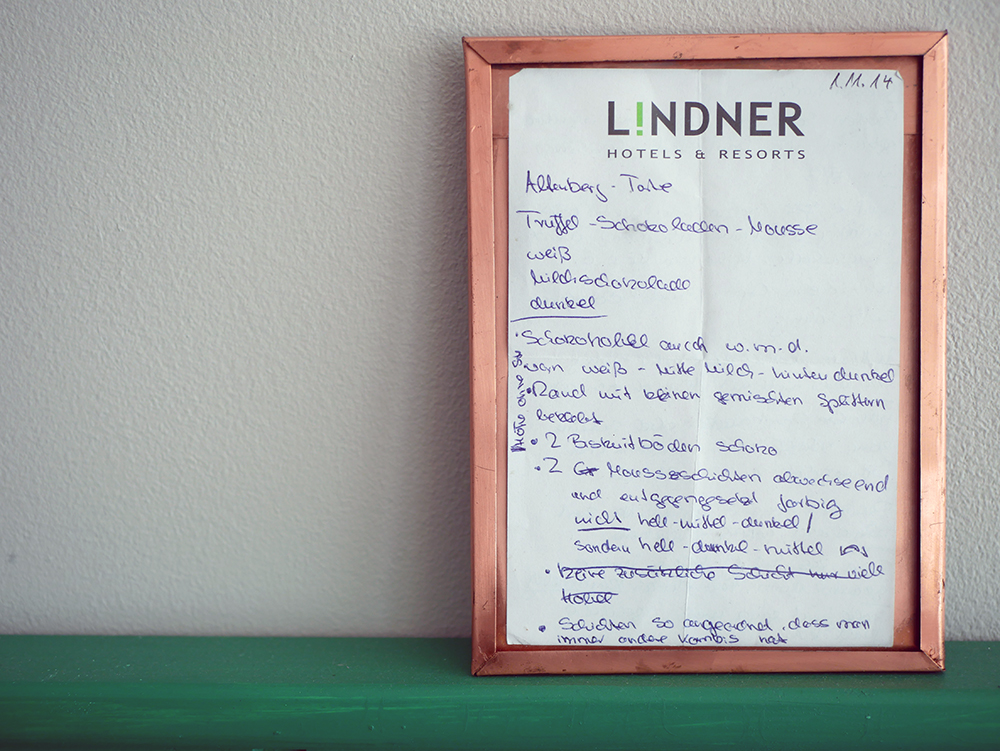 1.11.14
L!NDNER
HOTELS & RESORTS
Altenberg - Torte
Trüffel - Schokoladen - Mousse
weiß
Milchschokolade
dunkel
• Schokohobel auch w.m.d.
vorn weiß - Mitte Milch - hinten dunkel
• Rand mit kleinen gemischten Splittern
beklebt
• 2 Biskuitböden Schoko
• 2 Mousseschichten abwechselnd
und entgegengesetzt farbig
nicht hell-mittel-dunkel /
sondern hell-dunkel-mittel
• keine zusätzliche Schicht nur viele
Hobel
• Schichten so angeordnet, dass man
immer andere Kombis hat